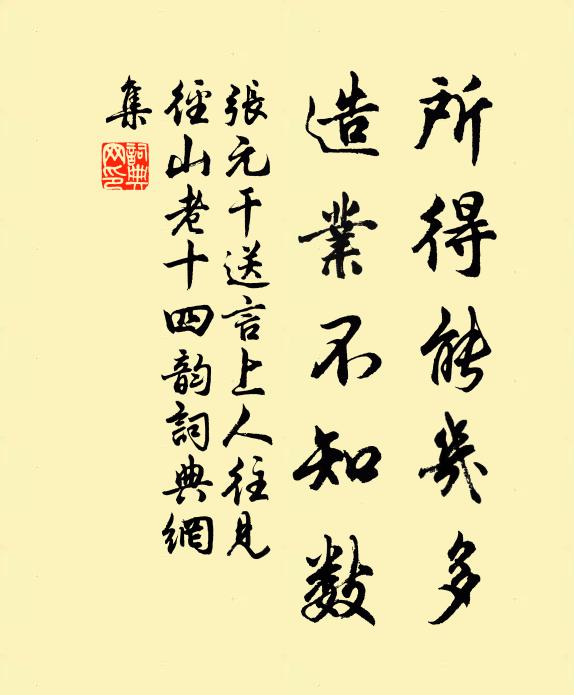 所得能幾多
造業不知數
張元干送言上人往見
徑山老十四韵詞典網
集
詞典
网印